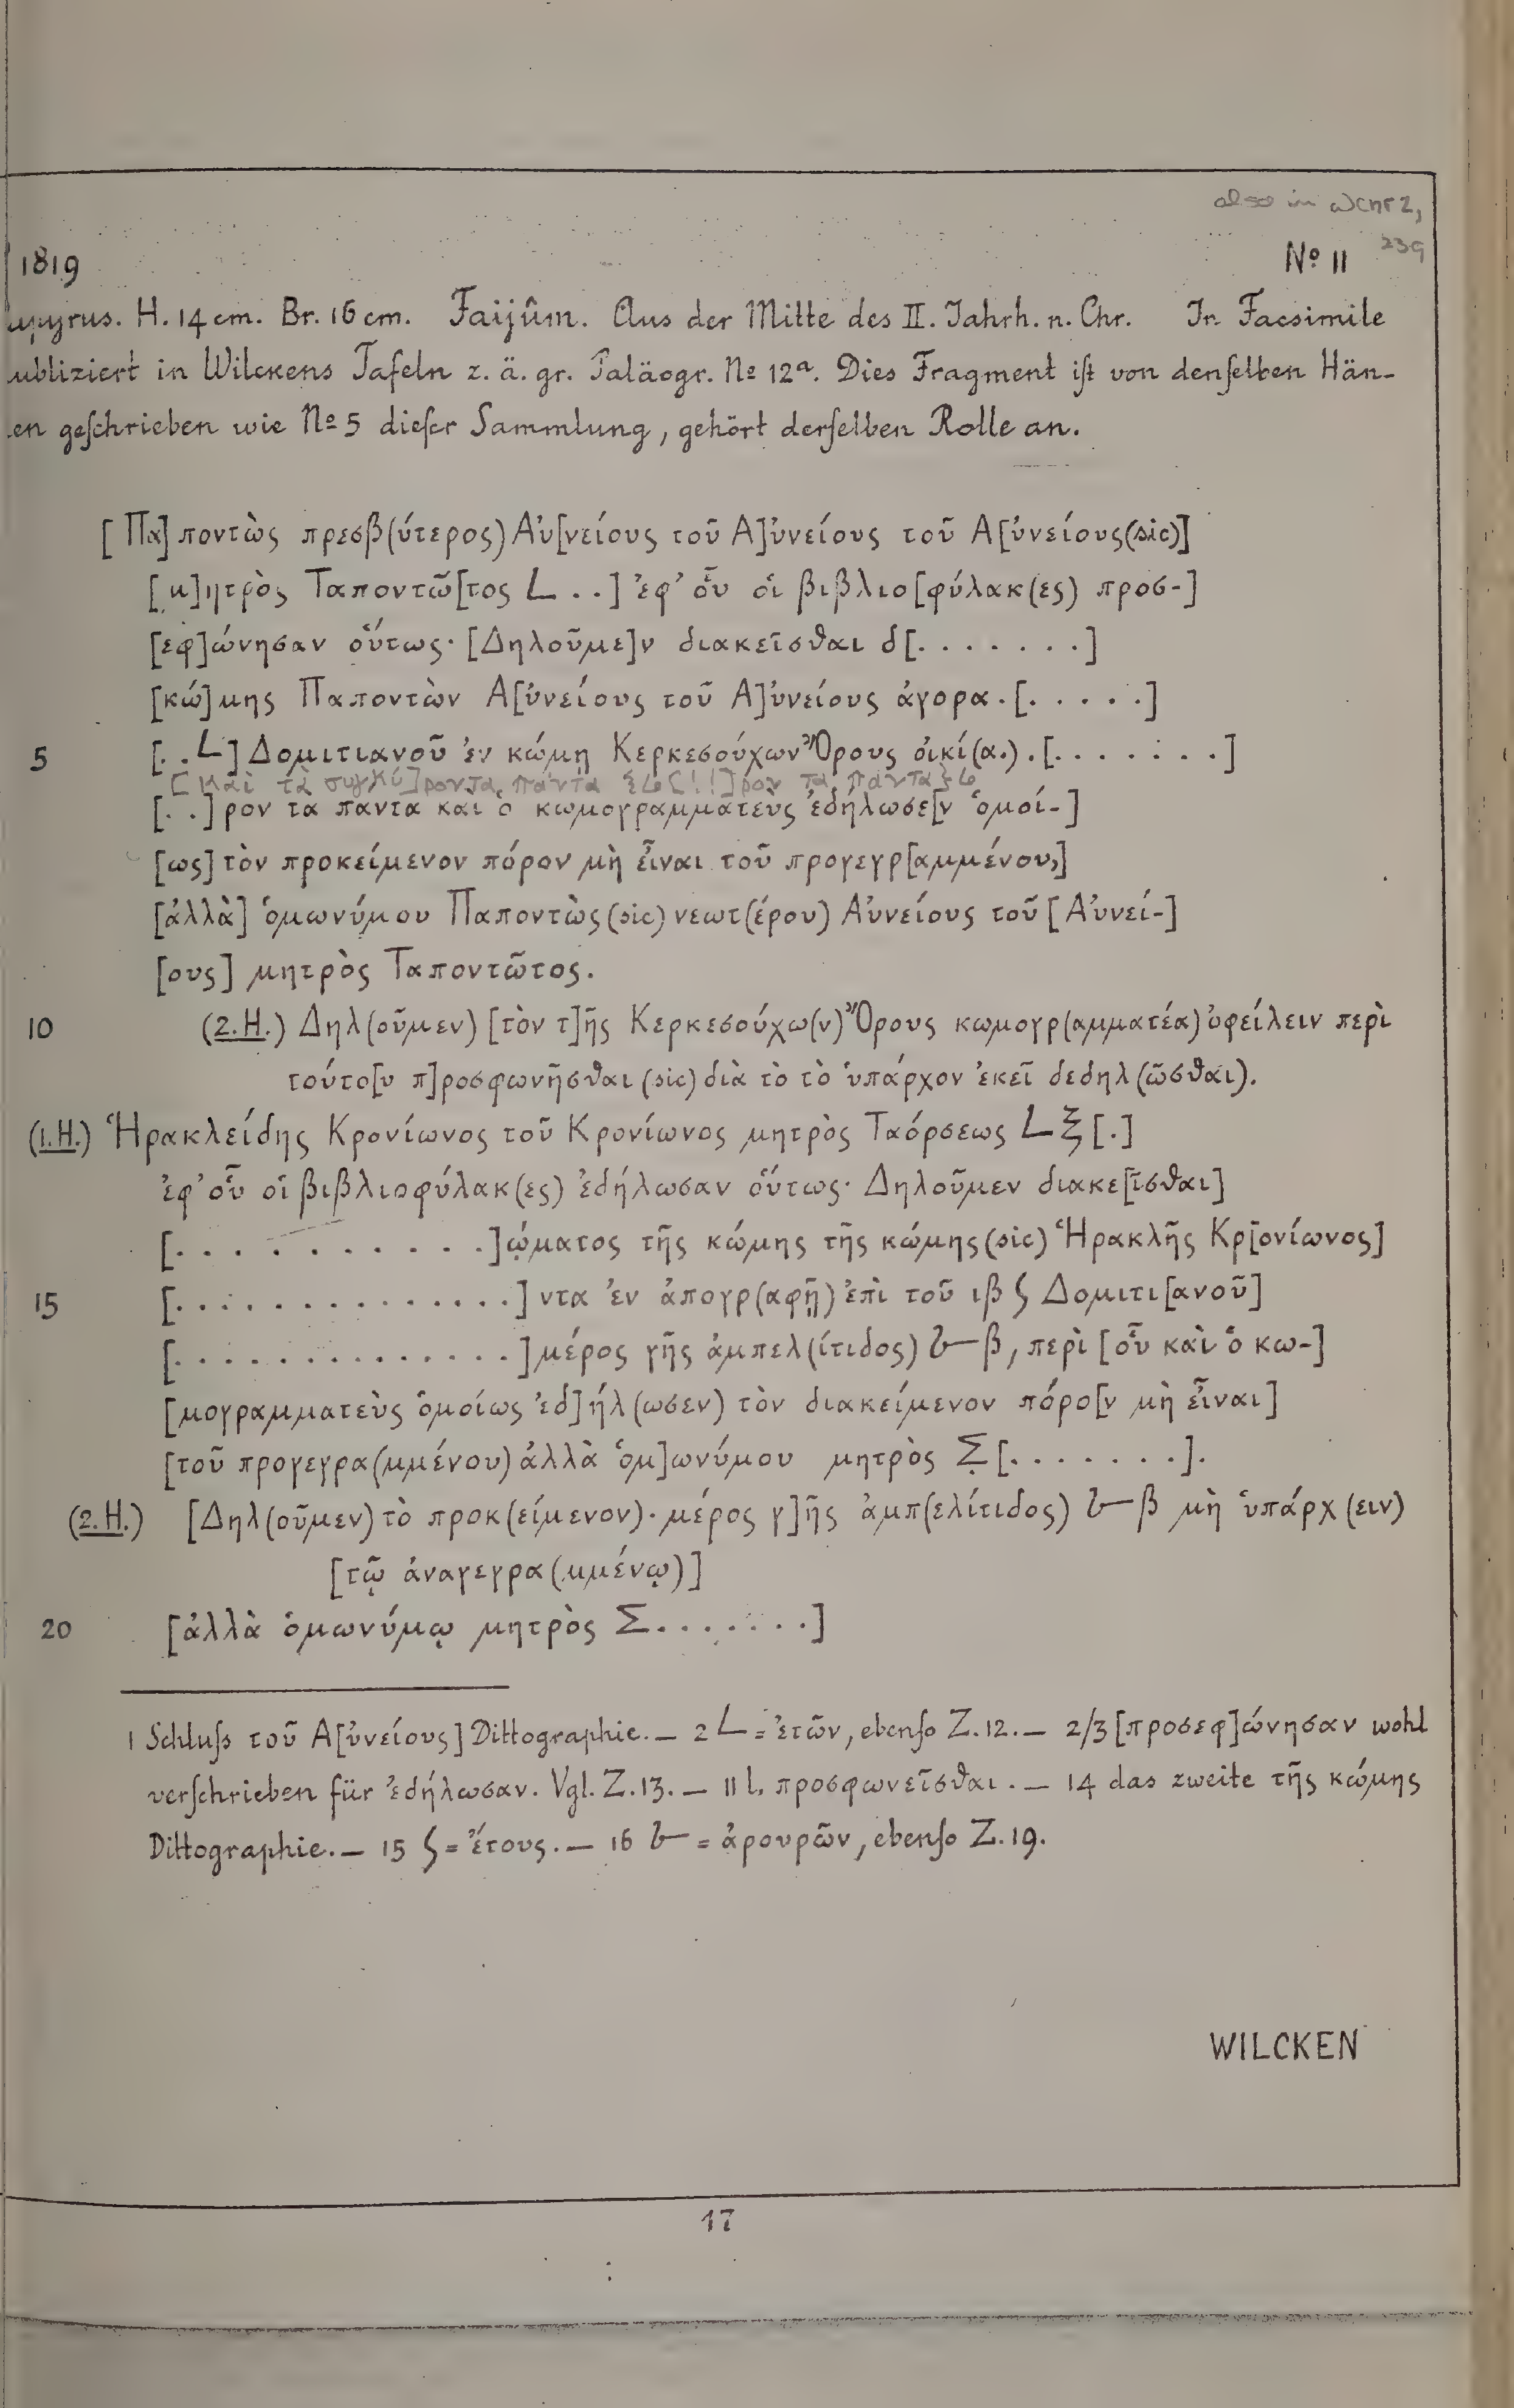 also in WChr 2,
239
1819 No 11
apyrus. H. 14 cm. Br. 16 cm. Faijûm. Aus der Mitte des II. Jahrh. n. Chr. In Facsimile
ubliziert in Wilckens Tafeln z. ä. gr. Paläogr. No 12a. Dies Fragment iſt von denſelben Hän-
en geſchrieben wie No 5 dieſer Sammlung, gehört derſelben Rolle an.
[Πα]ποντὼς πρεσβ(ύτερος) Αὐ[νείους τοῦ Α]ὐνείους τοῦ Α[ὐνείους (sic)]
[μ]ητρὸς Ταποντῶ[τος L . .] ἐφ’ οὗ οἱ βιβλιο[φύλακ(ες) προσ-]
[εφ]ώνησαν οὕτως· [Δηλοῦμε]ν διακεῖσθαι δ[. . . . . . .]
[κώ]μης Παποντὼν Α[ὐνείους τοῦ Α]ὐνείους ἀγορα.[. . . . .]
5 [. . L] Δομιτιανοῦ ἐν κώμῃ Κερκεσούχων Ὄρους οἰκί(α.) .[. . . . . . .]
[καὶ τὰ συγκύ]ροντα πάντα
[. .] ρον τα παντα και ὁ κωμογραμματεὺς ἐδήλωσε[ν ὁμοί-]
[ως] τὸν προκείμενον πόρον μὴ εἶναι τοῦ προγεγρ[αμμένου,]
[ἀλλὰ] ὁμωνύμου Παποντὼς (sic) νεωτ(έρου) Αὐνείους τοῦ [Αὐνεί-]
[ους] μητρὸς Ταποντῶτος.
10 (2. H.) Δηλ(οῦμεν) [τὸν τ]ῆς Κερκεσούχω(ν) Ὄρους κωμογρ(αμματέα) ὀφείλειν περὶ
τούτο[υ π]ροσφωνῆσθαι (sic) διὰ τὸ τὸ ὑπάρχον ἐκεῖ δεδηλ(ῶσθαι).
(1. H.) Ἡρακλείδης Κρονίωνος τοῦ Κρονίωνος μητρὸς Ταόρσεως L ξ [.]
ἐφ’ οὗ οἱ βιβλιοφύλακ(ες) ἐδήλωσαν οὕτως· Δηλοῦμεν διακε[ῖσθαι]
[. . . . . . . . . . . .]ώματος τῆς κώμης τῆς κώμης (sic) Ἡρακλῆς Κρ[ονίωνος]
15 [. . . . . . . . . . . . . .] ντα ἐν ἀπογρ(αφῇ) ἐπὶ τοῦ ιβ ϛ Δομιτι[ανοῦ]
[. . . . . . . . . . . . . .] μέρος γῆς ἀμπελ(ίτιδος) 𐅵 β, περὶ [οὗ καὶ ὁ κω-]
[μογραμματεὺς ὁμοίως ἐδ]ήλ(ωσεν) τὸν διακείμενον πόρο[ν μὴ εἶναι]
[τοῦ προγεγρα(μμένου) ἀλλὰ ὁμ]ωνύμου μητρὸς Σ̣[. . . . . . .].
(2. H.) [Δηλ(οῦμεν) τὸ προκ(είμενον)· μέρος γ]ῆς ἀμπ(ελίτιδος) 𐅵 β μὴ ὑπάρχ(ειν)
[τῷ ἀναγεγρα(μμένῳ)]
20 [ἀλλὰ ὁμωνύμῳ μητρὸς Σ. . . . . . .]
1 Schluſs τοῦ Α[ὐνείους] Dittographie. — 2 L = ἐτῶν, ebenſo Z. 12. — 2/3 [προσεφ]ώνησαν wohl
verſchrieben für ἐδήλωσαν. Vgl. Z. 13. — 11 l. προσφωνεῖσθαι. — 14 das zweite τῆς κώμης
Dittographie. — 15 ϛ = ἔτους. — 16 𐅵 = ἀρουρῶν, ebenſo Z. 19.
WILCKEN
17